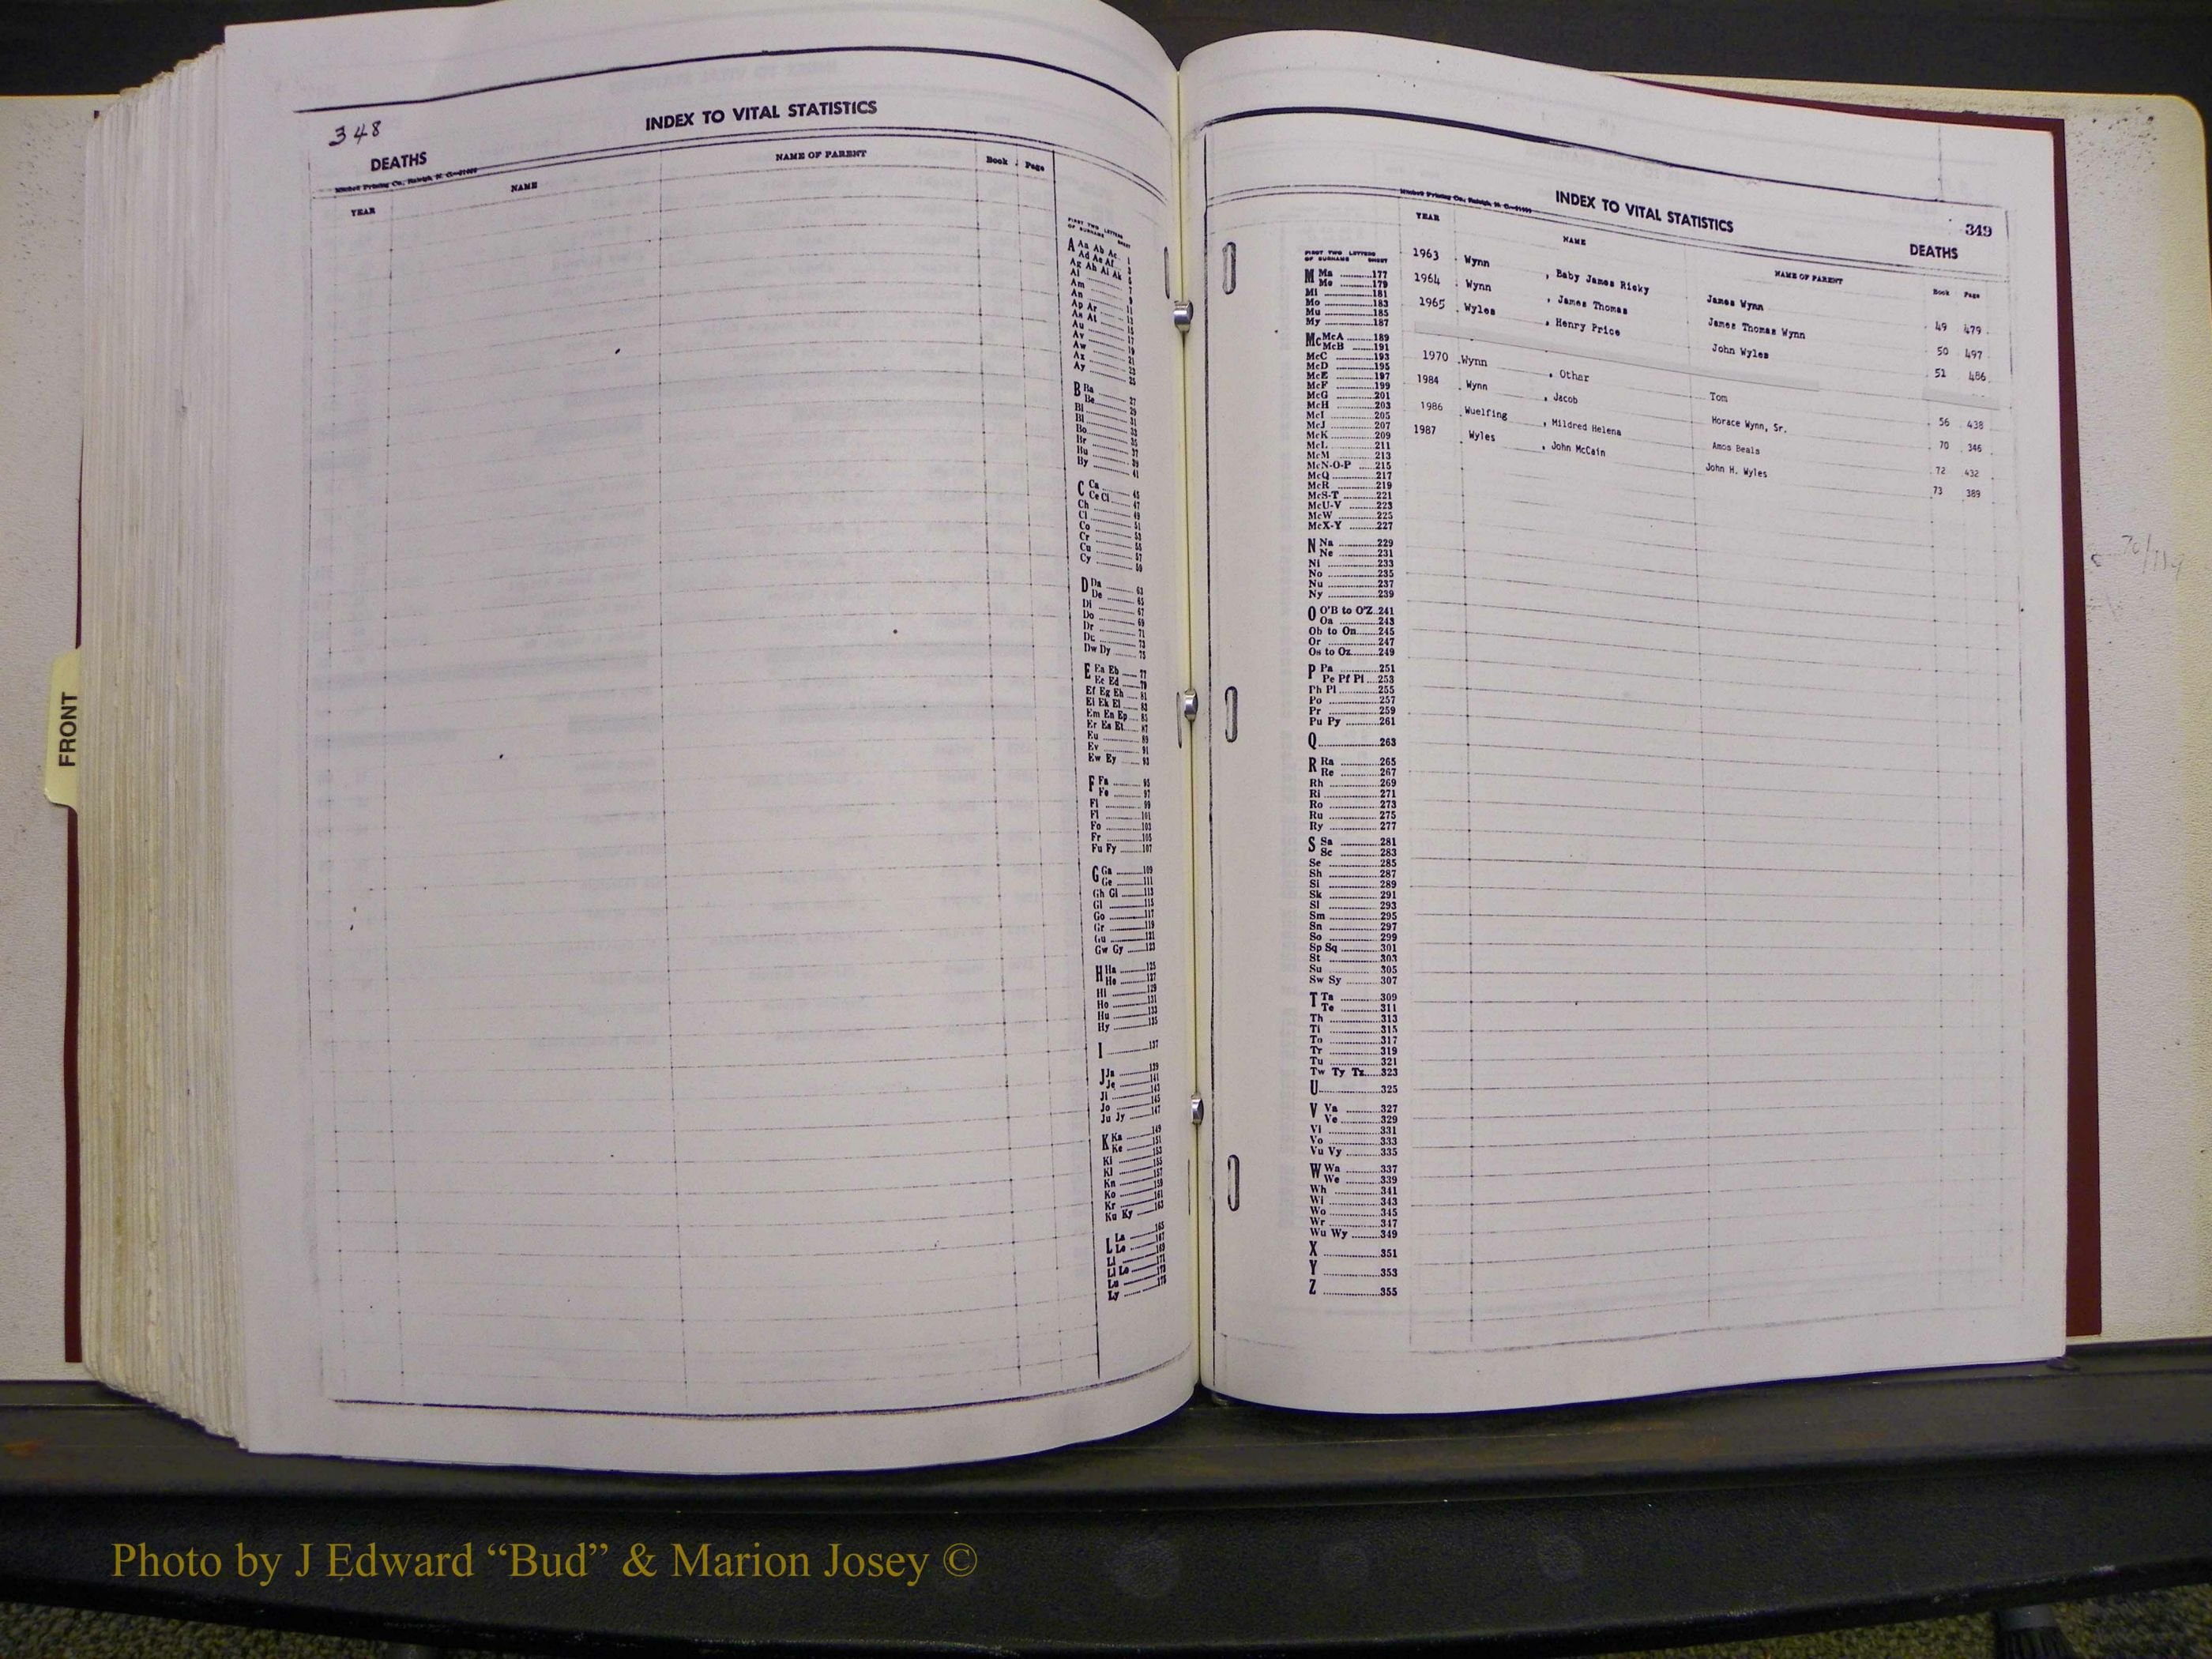 348
INDEX TO VITAL STATISTICS
DEATHS
Mitchell Printing Co., Raleigh, N. C.
YEAR NAME NAME OF PARENT Book Page
FIRST TWO LETTERS
OF SURNAME SHEET
A Aa Ab Ac 1
Ad Ae Af 3
Ag Ah Ai Ak 5
Al 7
Am 9
An 11
Ap Ar 13
As At 15
Au 17
Av 19
Aw 21
Ax 23
Ay 25
B Ba 27
Be 29
Bi 31
Bl 33
Bo 35
Br 37
Bu 39
By 41
C Ca 45
Ce Ci 47
Ch 49
Cl 51
Co 53
Cr 55
Cu 57
Cy 59
D Da 63
De 65
Di 67
Do 69
Dr 71
Dw Dy 75
E Ea Eb 77
Ec Ed 79
Ef Eg Eh 81
Ei Ek El 83
Em En Ep 85
Er Es Et 87
Eu 89
Ev 91
Ew Ey 93
F Fa 95
Fe 97
Fi 99
Fl 101
Fo 103
Fr 105
Fu Fy 107
G Ga 109
Ge 111
Gh Gi 113
Gl 115
Go 117
Gr 119
Gu 121
Gw Gy 123
H Ha 125
He 127
Hi 129
Ho 131
Hu 133
Hy 135
I 137
J Ja 139
Je 141
Ji 143
Jo 145
Ju Jy 147
K Ka 149
Ke 151
Ki 153
Kl 157
Kn 159
Ko 161
Kr
Ku Ky 163
L La 165
Le 167
Li 169
Ll Lo
Lu
Ly 175
349
INDEX TO VITAL STATISTICS
DEATHS
Mitchell Printing Co., Raleigh, N. C.
YEAR NAME NAME OF PARENT Book Page
1963 Wynn , Baby James Ricky James Wynn 49 479
1964 Wynn , James Thomas James Thomas Wynn 50 497
1965 Wyles , Henry Price John Wyles 51 486
1970 Wynn , Othar Tom 56 438
1984 Wynn , Jacob Horace Wynn, Sr. 70 346
1986 Wuelfing , Mildred Helena Amos Beals 72 432
1987 Wyles , John McCain John H. Wyles 73 389
FIRST TWO LETTERS
OF SURNAME SHEET
M Ma 177
Me 179
Mi 181
Mo 183
Mu 185
My 187
Mc McA 189
McB 191
McC 193
McD 195
McE 197
McF 199
McG 201
McH 203
McI 205
McJ 207
McK 209
McL 211
McM 213
McN-O-P 215
McQ 217
McR 219
McS-T 221
McU-V 223
McW 225
McX-Y 227
N Na 229
Ne 231
Ni 233
No 235
Nu 237
Ny 239
O O'B to O'Z 241
Oa 243
Ob to On 245
Or 247
Os to Oz 249
P Pa 251
Pe Pf Pi 253
Ph Pl 255
Po 257
Pr 259
Pu Py 261
Q 263
R Ra 265
Re 267
Rh 269
Ri 271
Ro 273
Ru 275
Ry 277
S Sa 281
Sc 283
Se 285
Sh 287
Si 289
Sk 291
Sl 293
Sm 295
Sn 297
So 299
Sp Sq 301
St 303
Su 305
Sw Sy 307
T Ta 309
Te 311
Th 313
Ti 315
To 317
Tr 319
Tu 321
Tw Ty Tz 323
U 325
V Va 327
Ve 329
Vi 331
Vo 333
Vu Vy 335
W Wa 337
We 339
Wh 341
Wi 343
Wo 345
Wr 347
Wu Wy 349
X 351
Y 353
Z 355
FRONT
Photo by J Edward “Bud” & Marion Josey ©